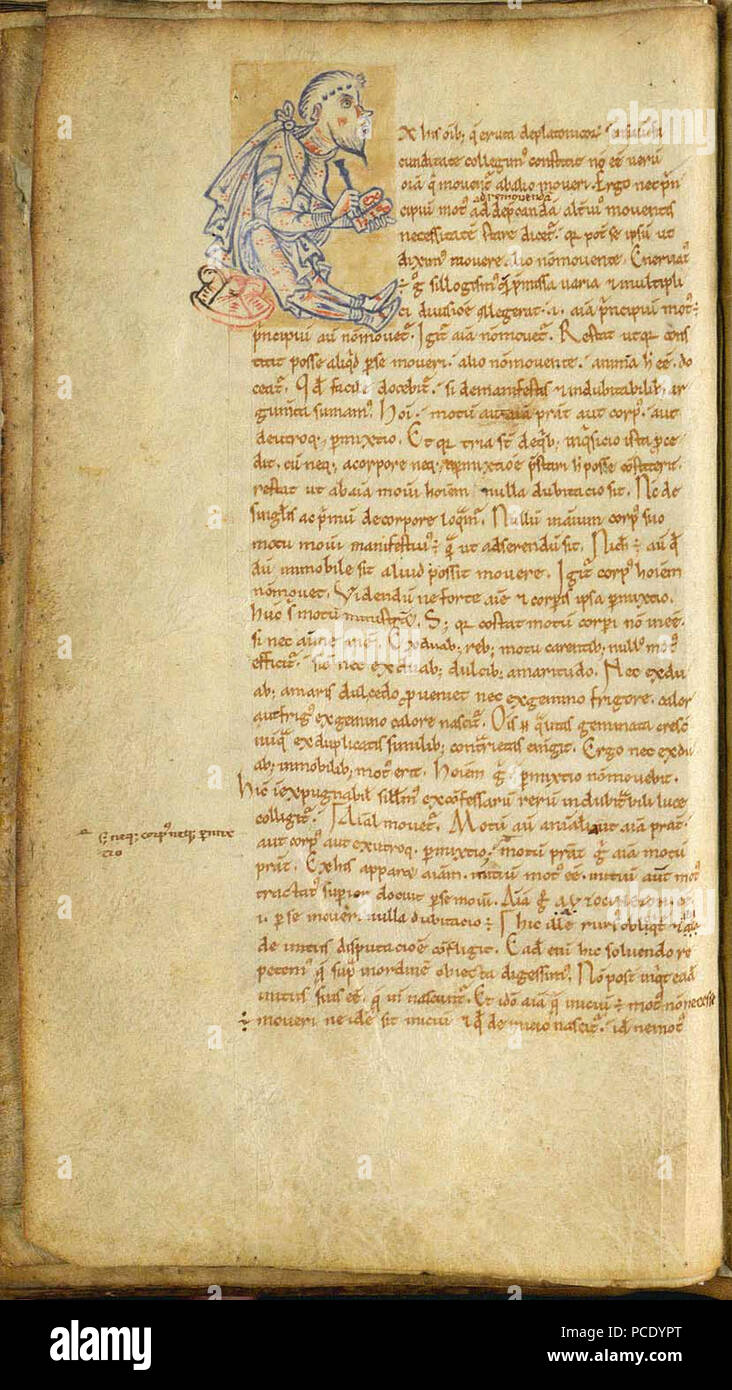 ex
his
x his oib; q̄ eruta deplatonicoꝝ
cunditate collegim⁹ constitit nō eē uerū
oīa q̄ mouent̄ abalio moueri. Ergo nec p̄n
admouendā
cipiū mot⁹ ad depcandā alteri⁹ mouentis
necessitatē stare dicet̄. q̄ pot̄ se ipsū ut
dixim⁹ mouere. alio nōmouente. Eneruat⁹
÷ ḡ sillogism⁹ q̄ p̄missa uaria ⁊ multipli
ci diuisioē collegerat. i. aīa p̄ncipiū mot⁹ ÷
p̄ncipiū aū nōmouet̄. Igit̄ aīa nōmouet̄. Restat ut q̄ cons
titit posse aliqd̄ p se moueri. alio nōmouente. animā h̄ eē. do
ceat̄. Qd̄ facile docebit̄. si demanifestis ⁊ indubitabilib; ar
gumtis sumam⁹. Hoī. motū aut aīa prat̄ aut corp⁹. aut
deutroq; pmixtio. Et q̄ tria st̄ deqb; inq̄sicio ista p̄ce
dit. cū neq; acorpore neq; apmixtioē p̄stari h̄ posse cōstiterit.
restat ut abaīa moūi hoīem nulla dubitacio sit. Nc̄ de
singl̄is ac p̄mū decorpore loqm̄. Nullū inaīmū corp⁹ suo
motu moūi manifestiu⁹ ÷ q̄ ut adserendū sit. Nich̄ ÷ aū qd̄
dū immobile sit aliud possit mouere. Igit̄ corp⁹ hoīem
nōmouet. Videndū ne forte aīe ⁊ corpis ipsa pmixtio.
hūc s̄ motū ministret̄. S; q̄ cōstat motū corpi nō ineē.
si nec aīe inē. Exduab; reb; motu carentib; null⁹ mot⁹
efficit̄. sic nec exduab; dulcib; amaritudo. Nec exdu
ab; amaris dulcedo p̄ueniet nec exgemino frigore. calor
aut frig⁹ exgemino calore nascit̄. Oīs n̄ q̄litas geminata crescit
nūq̄ exduplicatis similib; cont̄rietas emgit. Ergo nec exdu
ab; immobilib; mot⁹ erit. Hoiem ḡ. pmixtio nōmouebit.
hīc īexpugnabil sill̄m⁹ exconfessarū rerū indubitabili luce
colligit̄. Aīal mouet̄. Motū aū animali aut aīa prat̄.
ē neq; corp⁹ neq; pmix
cio
aut corp⁹ aut exutroq; pmixtio. motū prat̄ ḡ aīam motū
prat̄. Exhis apparet aīam. initiū mot⁹ eē. initiū aūt mot⁹
tractat⁹ superior docuit p se moūi. Aīa ḡ
i. p se mouēri nulla dubitacio ÷ Hic ille rur⁹ obliqt̄
de initiis disputacioē cōfligit. Eadē enī hic soluendo re
petem⁹ q̄ sup̄ inordinē obiecta digessim⁹. Nōpost inqt eadē
initiis suis eē. q̄ īn nascunt̄. Et idō aīa q̄ iniciū ÷ mot⁹ nō necesse
÷ moueri ne idē sit iniciū ⁊ qd̄ de inicio nascit̄. id nemot⁹
alamy
Image ID: PCDYPT
www.alamy.com